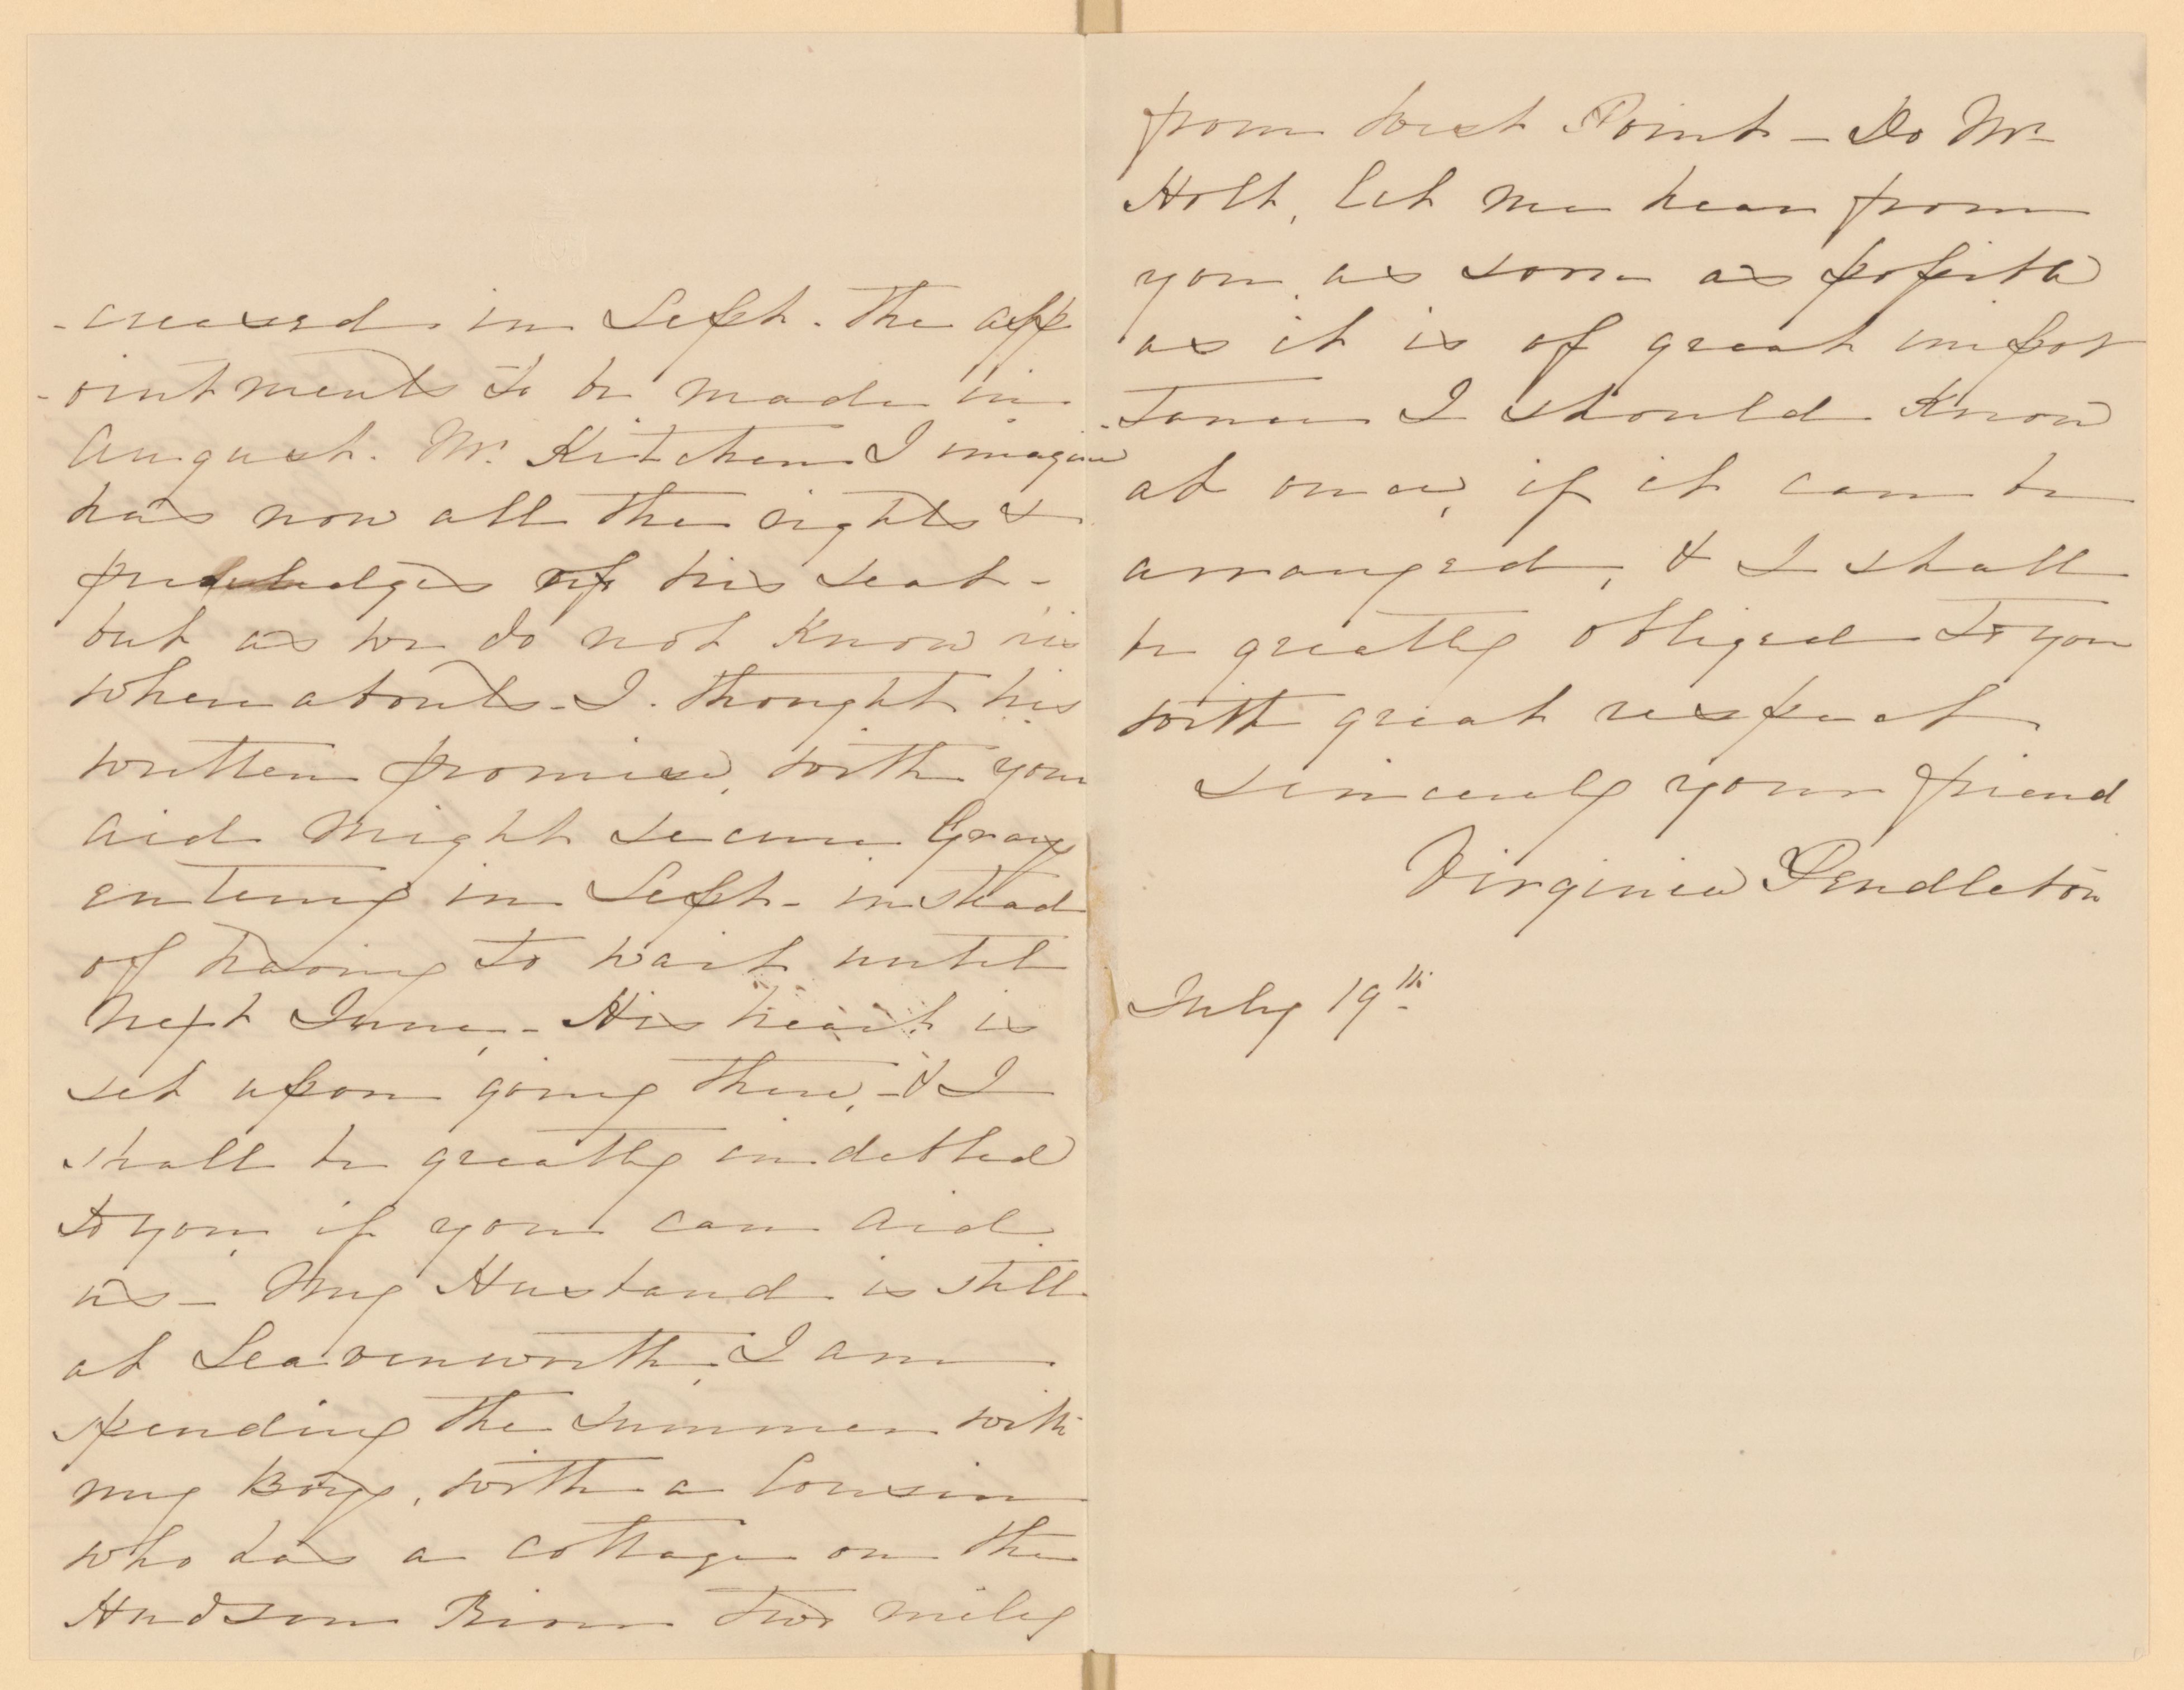 -creased in Sept. The app
-ointments to be made in
August. Mr. Kitchen I imagine
has now all the rights &
priviledges of his seat -
but as we do not know his
whereabouts - I thought his
written promise, with your
aid might secure Gray
entering in Sept - instead
of having to wait until
next June, - His heart is
set upon going there, - & I
shall be greatly indebted
to you, if you can aid
us - My Husband is still
at Leavenworth, I am
spending the summer with
my Boys, with a Cousin
who has a cottage on the
Hudson River two miles
from West Point - Do Mr
Holt, let me hear from
you, as soon as possible
as it is of great impor
-tance I should Know
at once, if it can be
arranged, & I shall
be greatly obliged to you
with great respect
sincerely your friend
Virginia Pendleton
July 19th